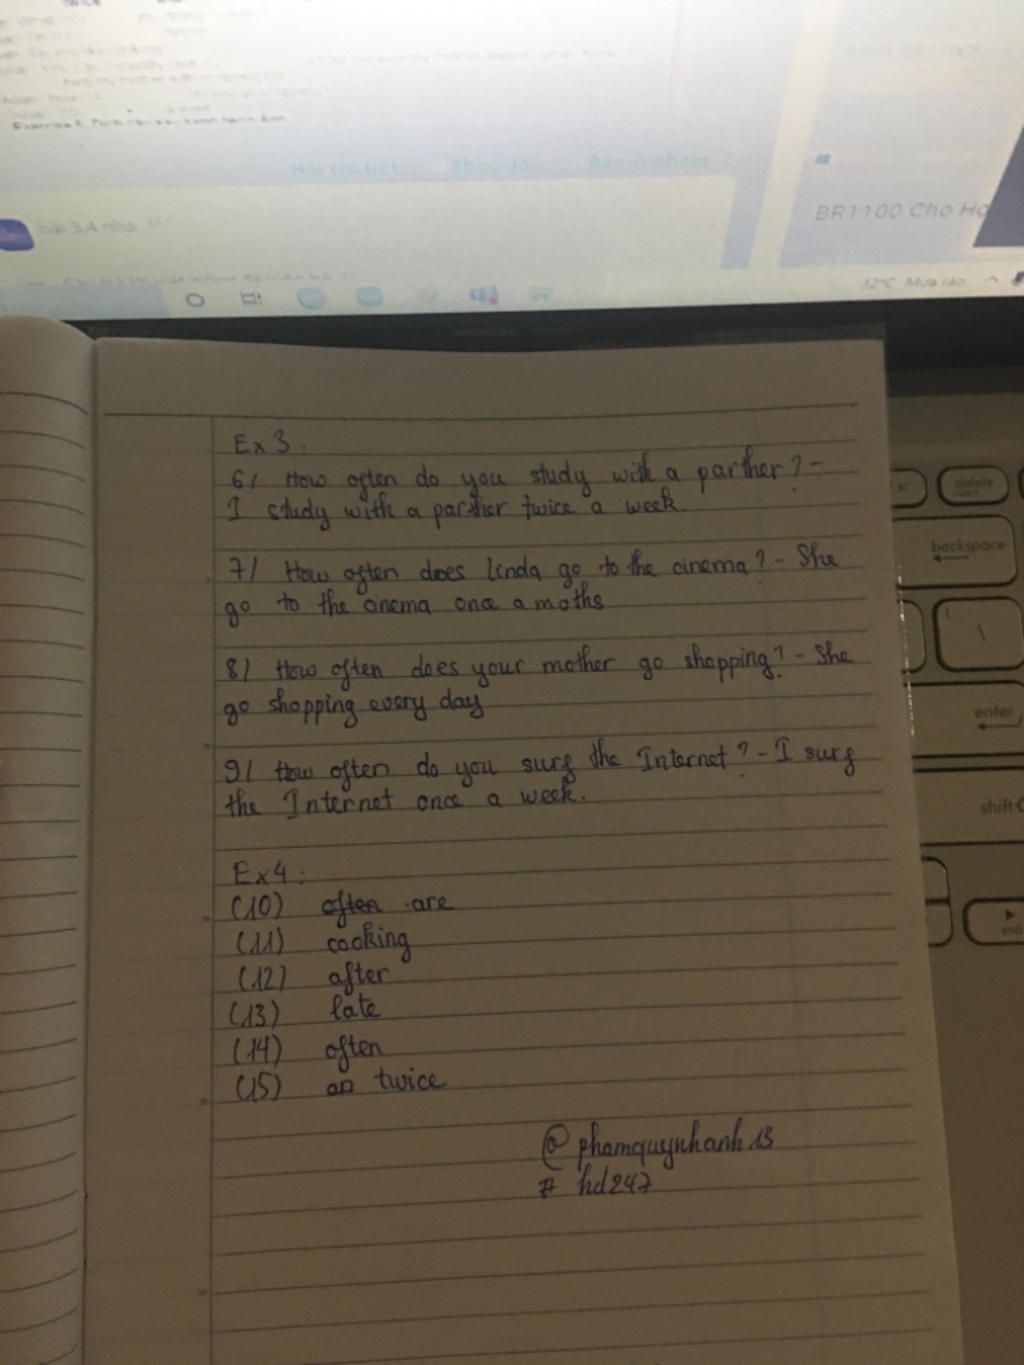 Hỏi chi tiết
Theo dõi
Báo vi phạm
bài 3,4 nha
BR1100 Cho Họ
32°C Mưa rào
delete
backspace
enter
shift
end
Ex 3.
6/ How often do you study with a parther? -
I study with a parther twice a week.
7/ How often does Linda go to the cinema? - She
go to the cinema once a moths
8/ How often does your mother go shopping? - She
go shopping every day
9/ How often do you surf the Internet? - I surf
the Internet once a week.
Ex4:
(10) often are
(11) cooking
(12) after
(13) late
(14) often
(15) on twice
@phamquynhanh13
# hd247